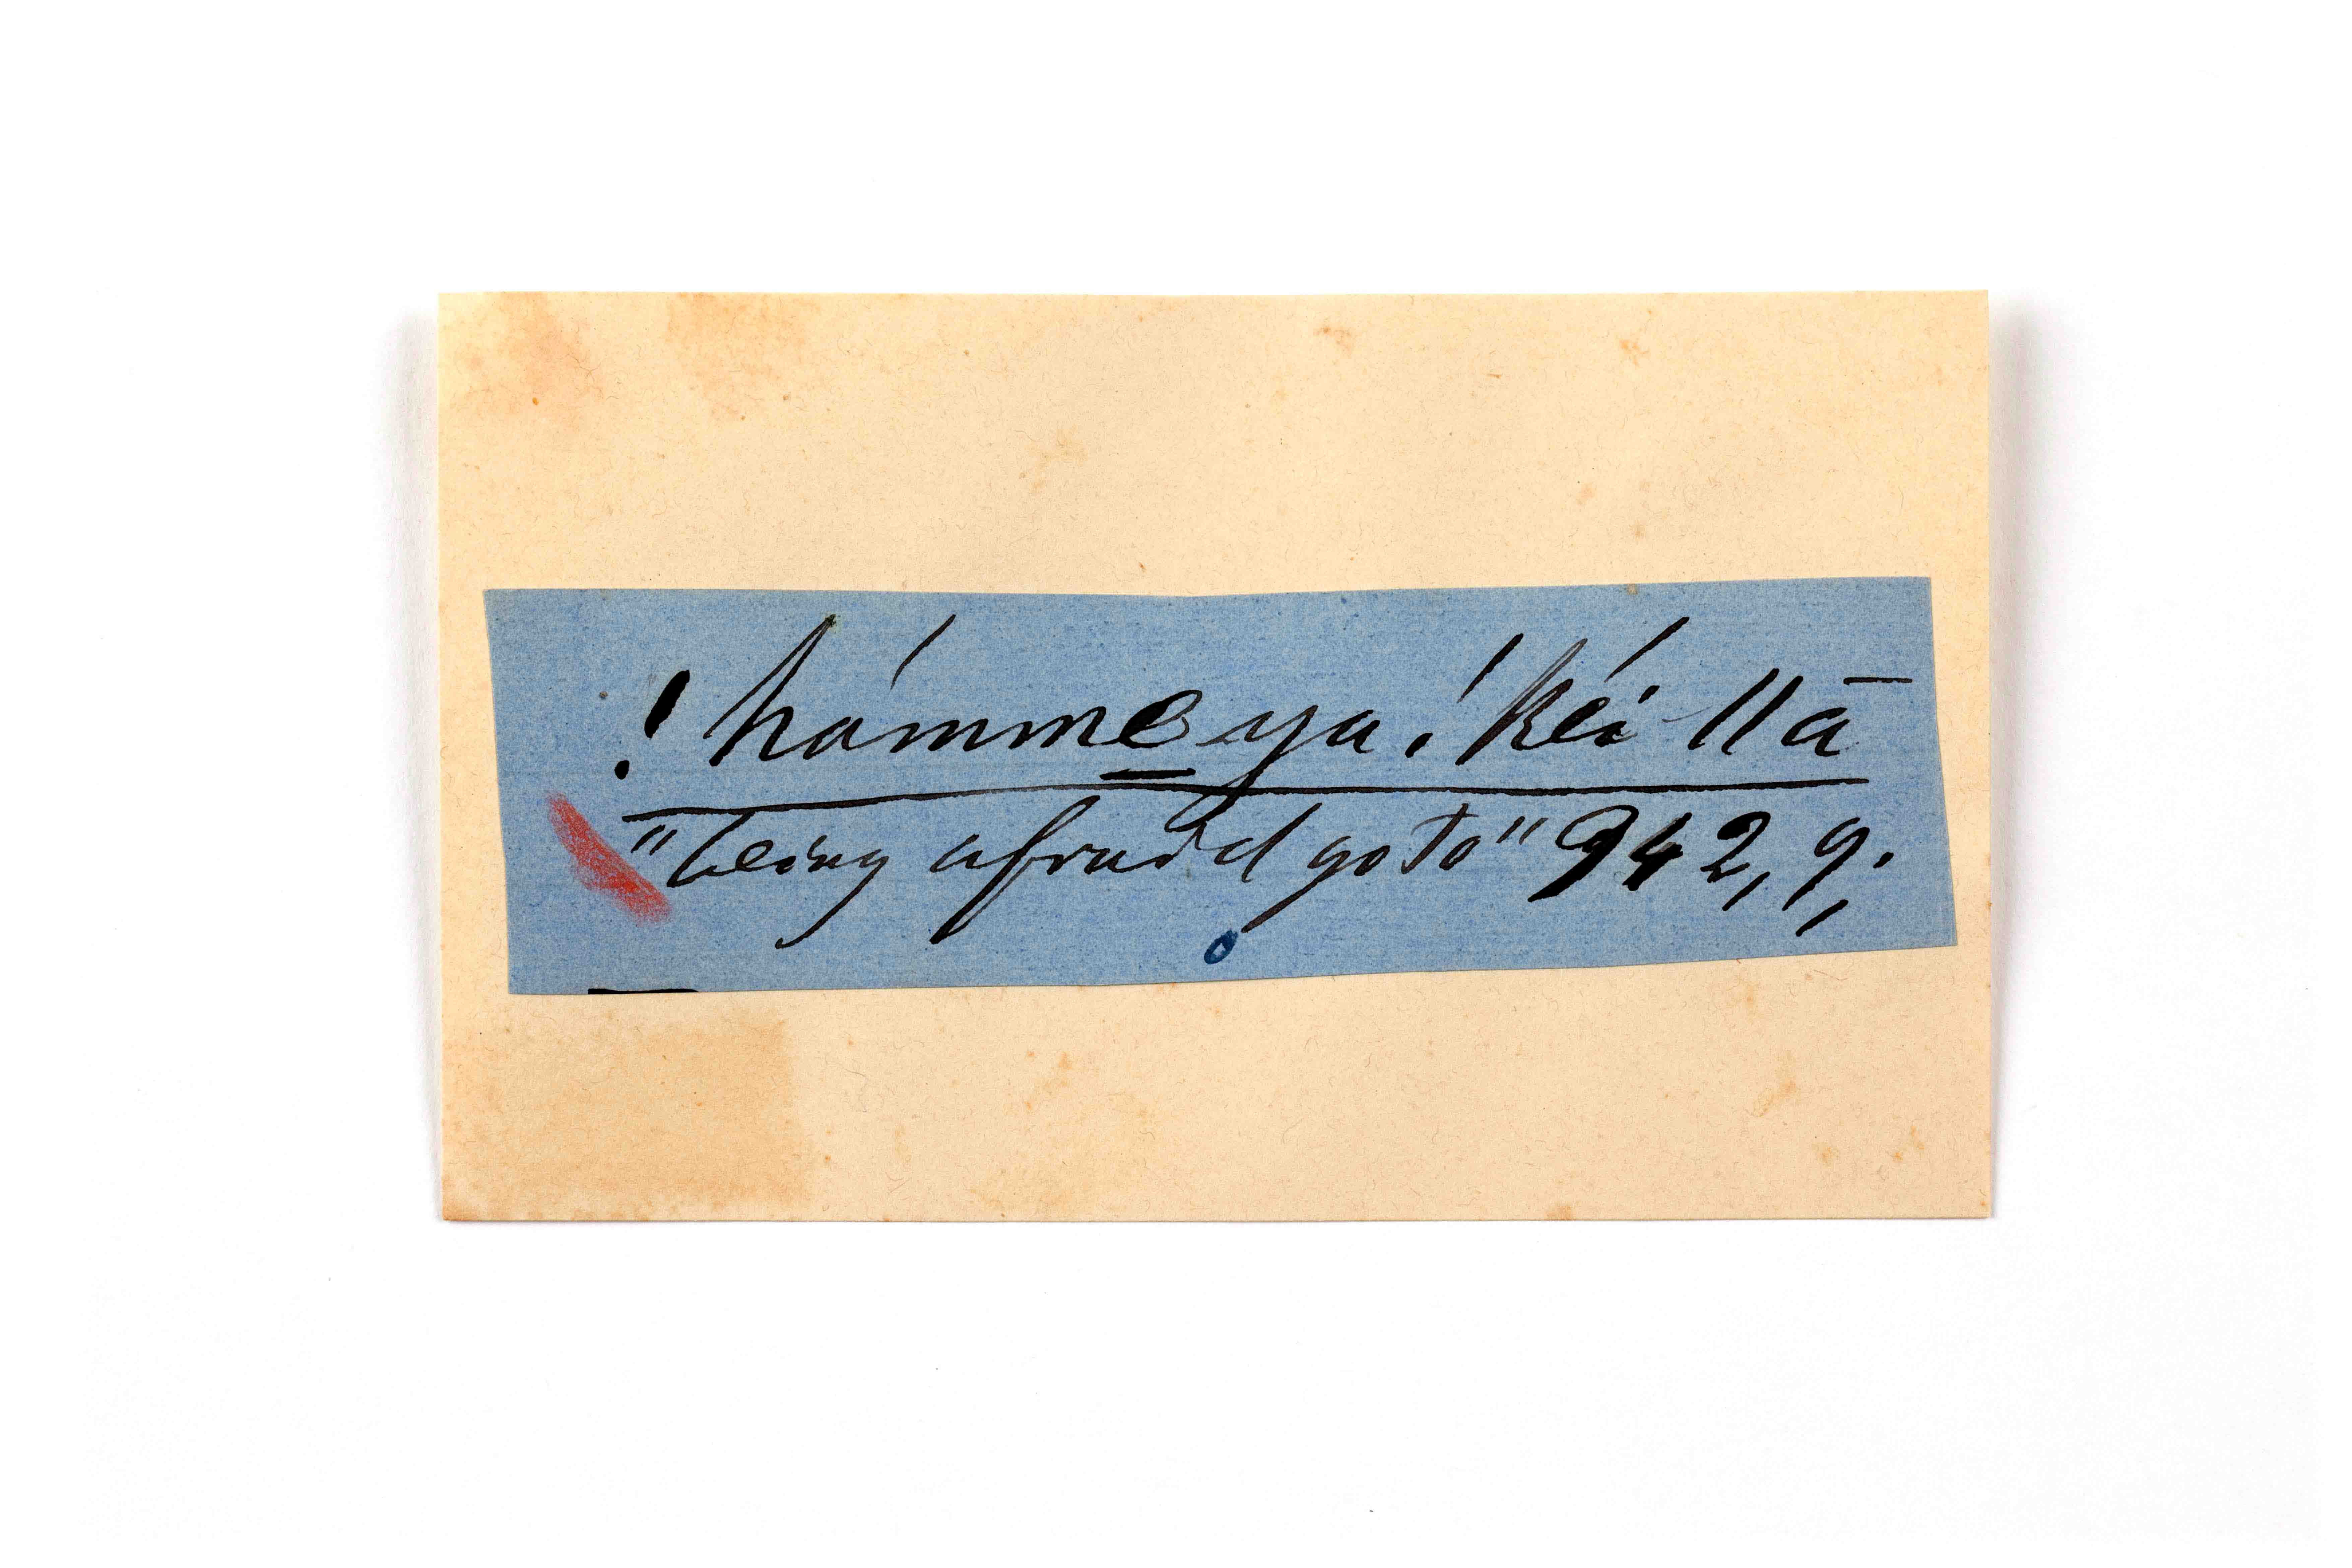 ! hámme̱ya, !kéi-ǁā
"being afraid go to" 942, 9,.